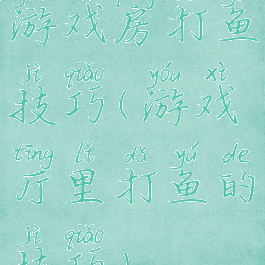 游戏房打鱼
jì qiǎo yóu xì
技巧(游戏
tīng lǐ dǎ yú de
厅里打鱼的
jì qiǎo
技巧)